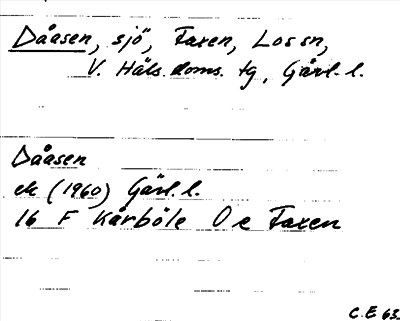 Dåasen, sjö, Faxen, Los sn,
V. Häls. doms. tg, Gävl. l.
Dåasen
ek (1960) Gävl. l.
16 F Kårböle O e Faxen
C.E 63.